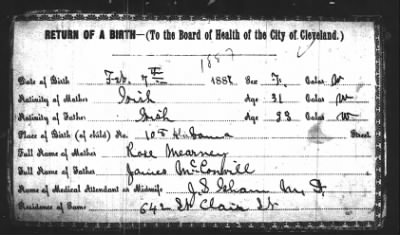 RETURN OF A BIRTH—(To the Board of Health of the City of Cleveland.)
1887
Date of Birth Feb. 7th 188 Sex F. Color W
Nativity of Mother Irish Age 31 Color W
Nativity of Father Irish Age 33 Color W
Place of Birth (of child) No. 105 Street
Full Name of Mother Rose Mearney
Full Name of Father James McConvill
Name of Medical Attendant or Midwife J. S. M. D.
Residence of Same 642 St Clair St